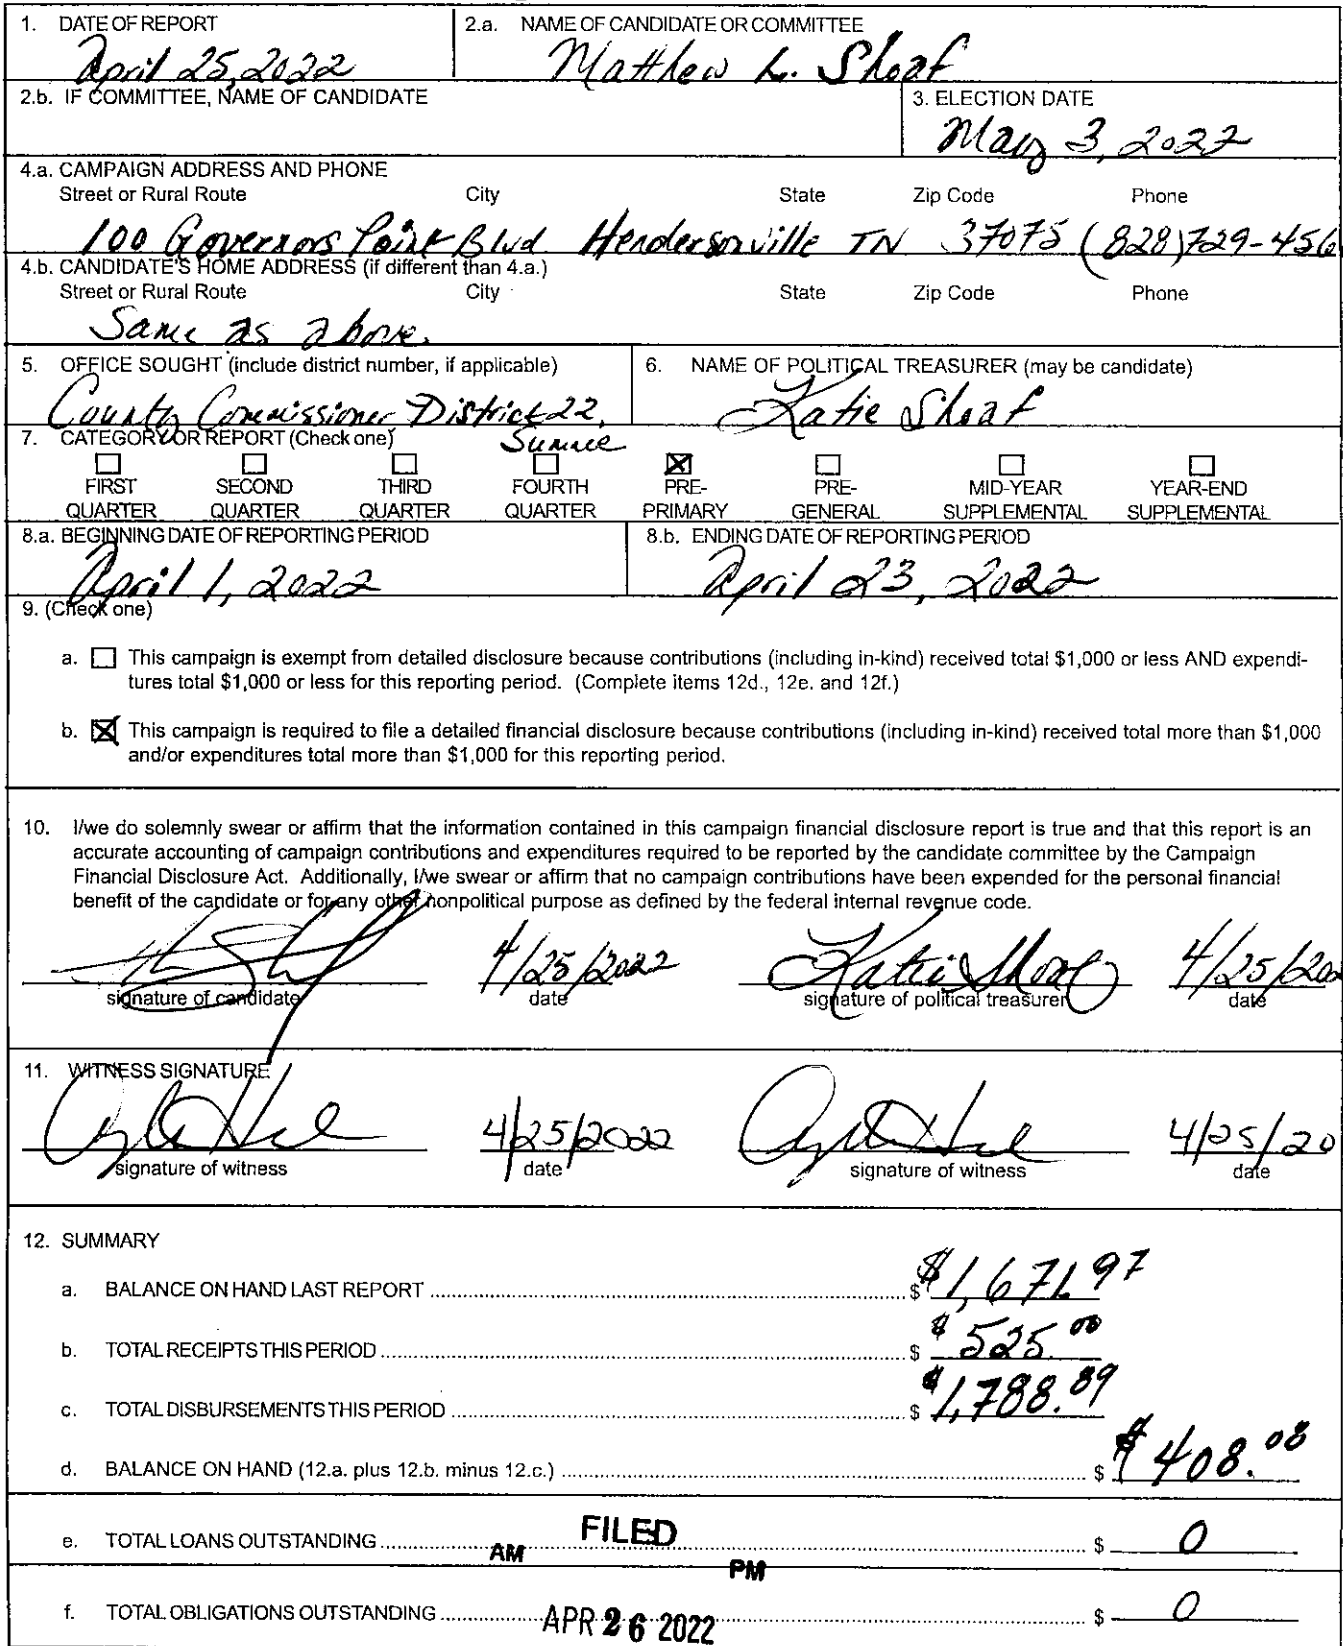 1. DATE OF REPORT
April 25, 2022
2.a. NAME OF CANDIDATE OR COMMITTEE
Matthew L. Shoaf
2.b. IF COMMITTEE, NAME OF CANDIDATE
3. ELECTION DATE
May 3, 2022
4.a. CAMPAIGN ADDRESS AND PHONE
Street or Rural Route City State Zip Code Phone
100 Governors Point Blvd Hendersonville TN 37075 (828)729-456
4.b. CANDIDATE'S HOME ADDRESS (if different than 4.a.)
Street or Rural Route City State Zip Code Phone
Same as above.
5. OFFICE SOUGHT (include district number, if applicable)
County Commissioner District 22,
6. NAME OF POLITICAL TREASURER (may be candidate)
Katie Shoaf
7. CATEGORY OR REPORT (Check one)
☐ ☐ ☐ ☐ ☒ ☐ ☐ ☐
FIRST SECOND THIRD FOURTH PRE- PRE- MID-YEAR YEAR-END
QUARTER QUARTER QUARTER QUARTER PRIMARY GENERAL SUPPLEMENTAL SUPPLEMENTAL
8.a. BEGINNING DATE OF REPORTING PERIOD
April 1, 2022
8.b. ENDING DATE OF REPORTING PERIOD
April 23, 2022
9. (Check one)
a. ☐ This campaign is exempt from detailed disclosure because contributions (including in-kind) received total $1,000 or less AND expendi-
tures total $1,000 or less for this reporting period. (Complete items 12d., 12e. and 12f.)
b. ☒ This campaign is required to file a detailed financial disclosure because contributions (including in-kind) received total more than $1,000
and/or expenditures total more than $1,000 for this reporting period.
10. I/we do solemnly swear or affirm that the information contained in this campaign financial disclosure report is true and that this report is an
accurate accounting of campaign contributions and expenditures required to be reported by the candidate committee by the Campaign
Financial Disclosure Act. Additionally, I/we swear or affirm that no campaign contributions have been expended for the personal financial
benefit of the candidate or for any other nonpolitical purpose as defined by the federal internal revenue code.
4/25/2022 Katie Shoaf 4/25/202
signature of candidate date signature of political treasurer date
11. WITNESS SIGNATURE
4/25/2022 4/25/20
signature of witness date signature of witness date
12. SUMMARY
a. BALANCE ON HAND LAST REPORT $ $1,671.97
b. TOTAL RECEIPTS THIS PERIOD $ $525.00
c. TOTAL DISBURSEMENTS THIS PERIOD $ $1,788.89
d. BALANCE ON HAND (12.a. plus 12.b. minus 12.c.) $ $408.08
e. TOTAL LOANS OUTSTANDING $ 0
FILED
AM PM
f. TOTAL OBLIGATIONS OUTSTANDING $ 0
APR 26 2022